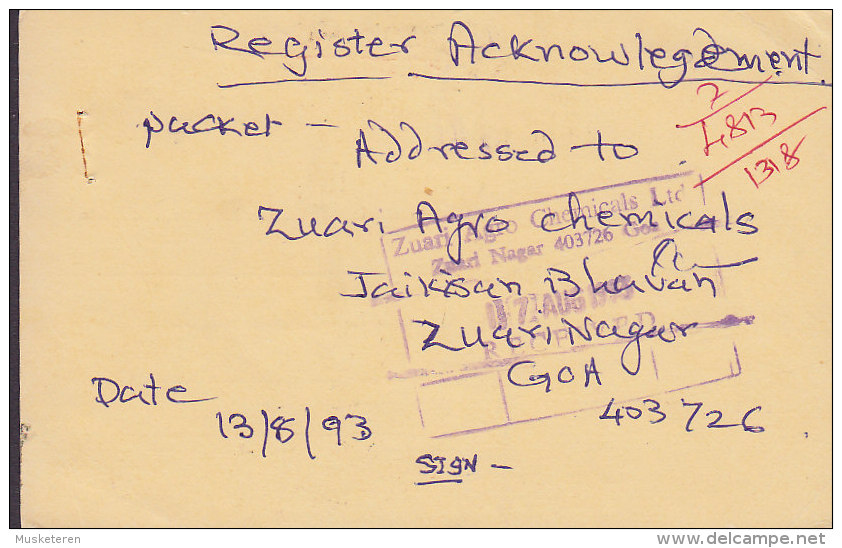 Register Acknowlegdment
2
4813
1318
packet - Addressed to
Zuari Agro Chemicals Ltd
Zuari Nagar 403726 Goa
Zuari Agro chemicals
Jaikisan Bhavan
Zuari Nagar
GOA
403726
Date
13/8/93
SIGN -
Musketeren
delcampe.net